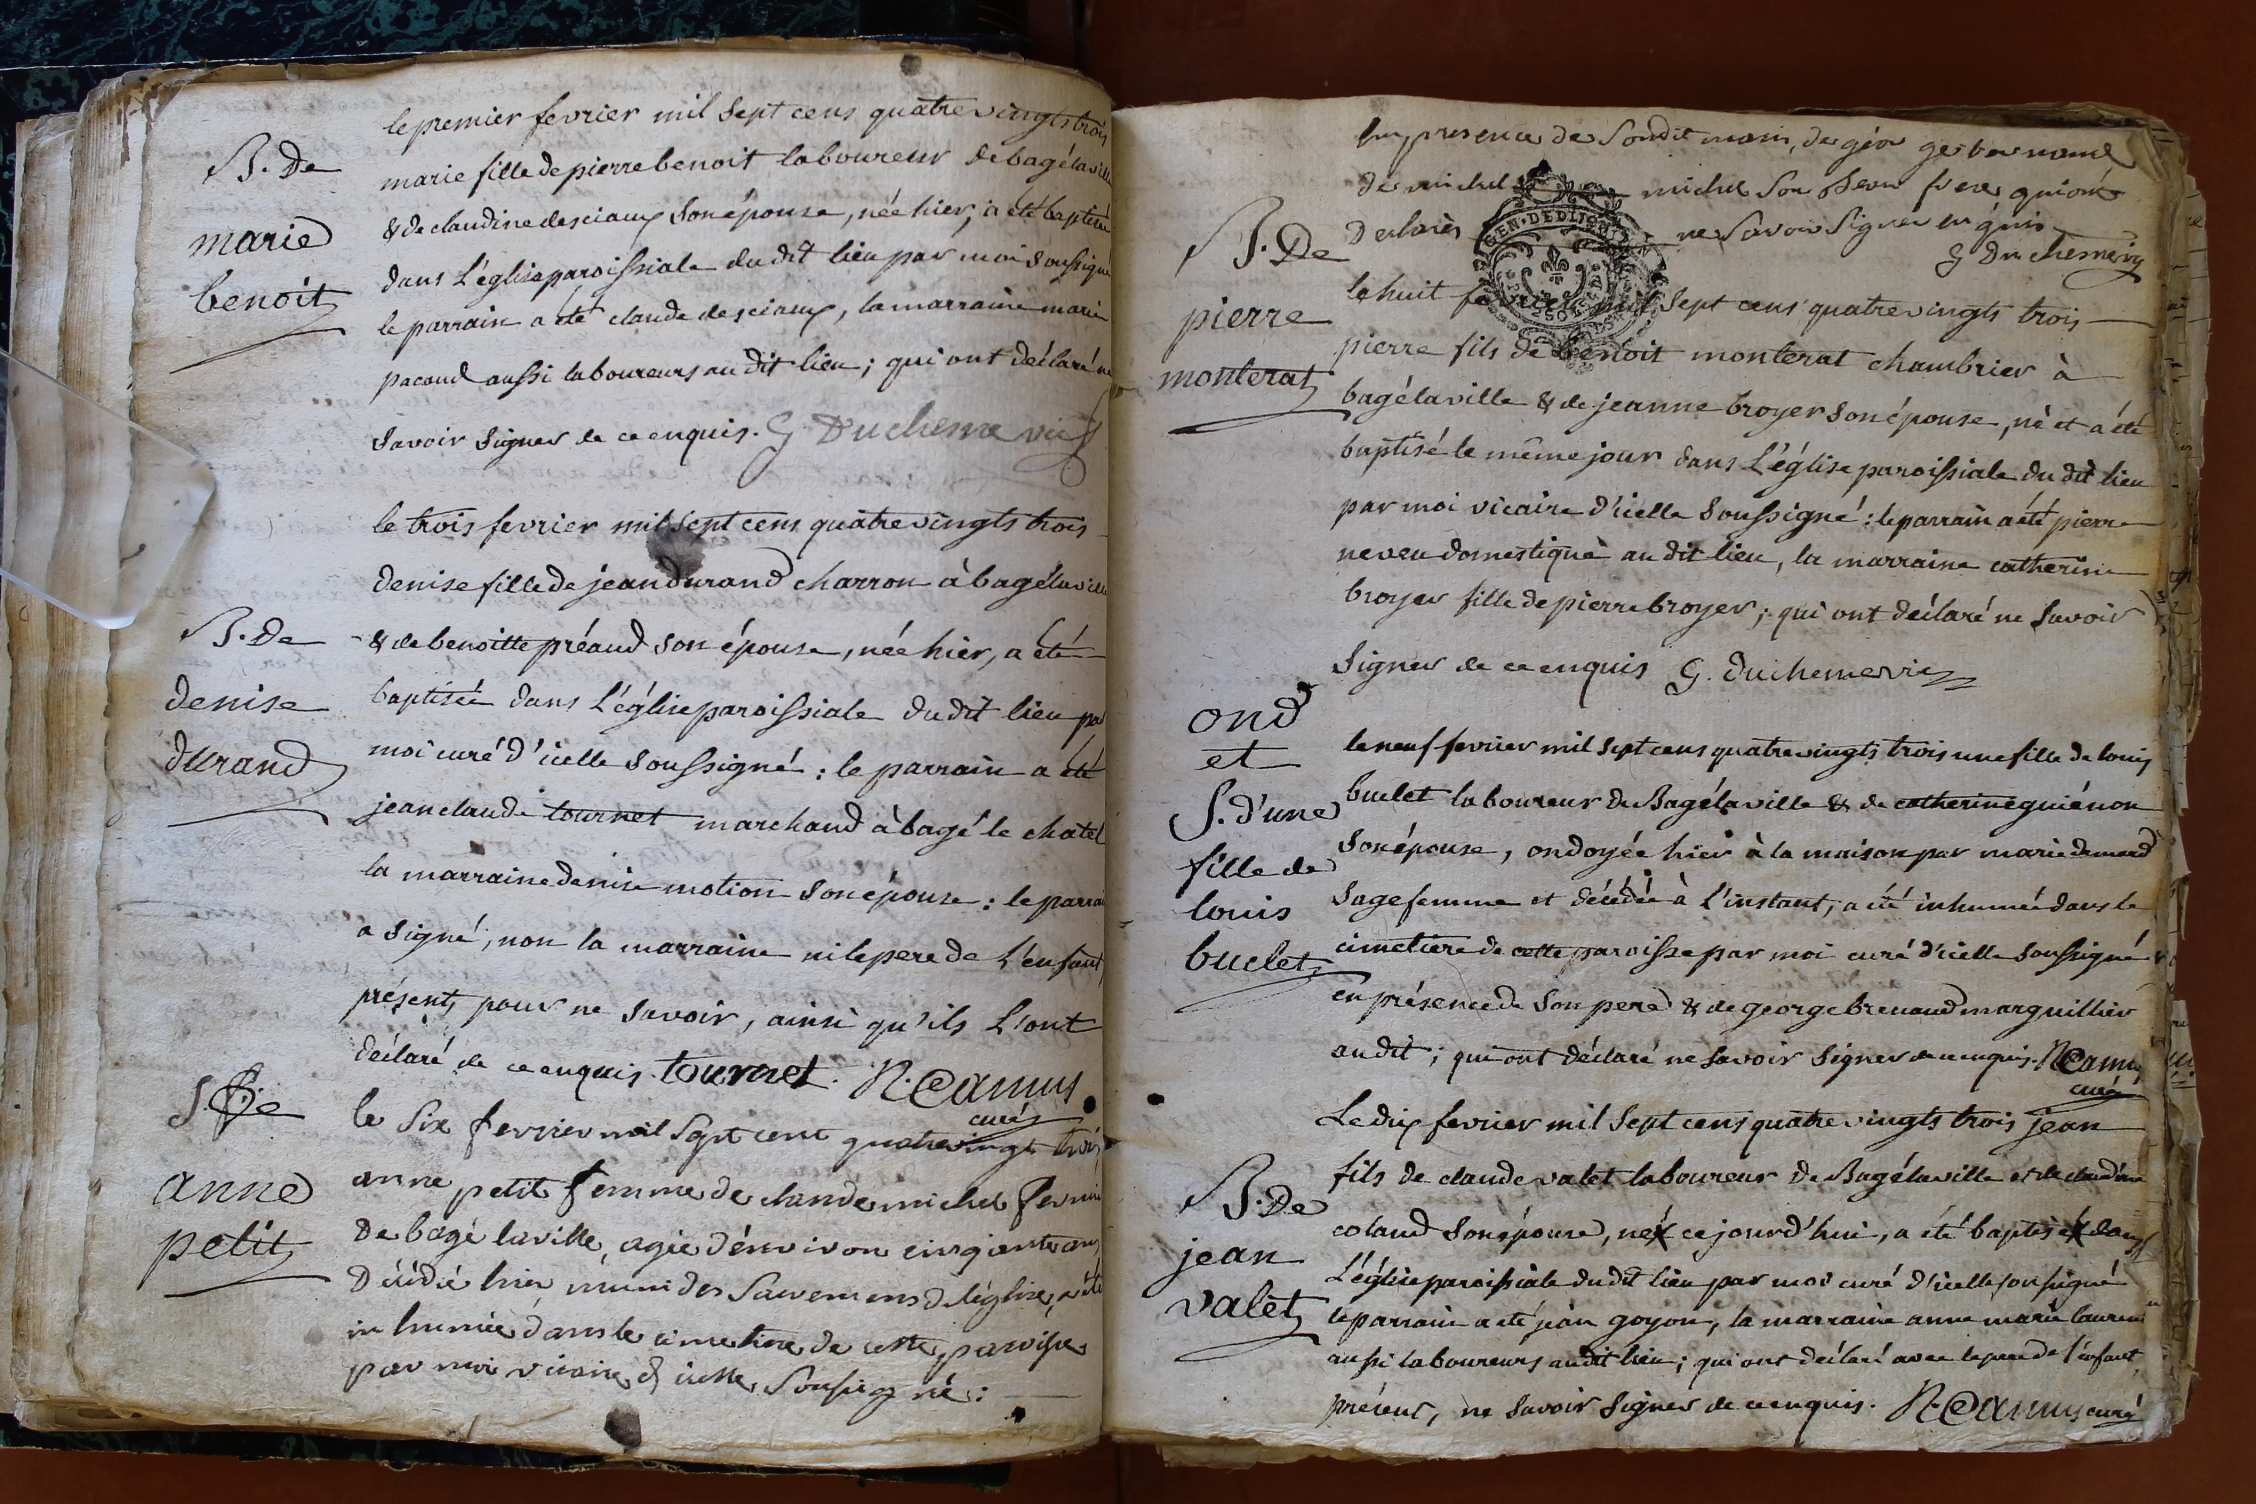 le premier fevrier mil Sept cens quatre vingts trois
B. De
marie fille de pierre benoit laboureur de bagélaville
& de claudine desciaux son épouse, née hier, a été baptisée
marie
dans L'église paroissiale du dit lieu par moi soussigné
benoit
le parrain a été claude desciaux, la marraine marie
pacaud aussi laboureurs au dit lieu ; qui ont déclaré ne
savoir signer de ce enquis. G Duchesne vic
le trois fevrier mil sept cens quatre vingts trois
denise fille de jean durand charron à bagélaville
B. De
& de benoitte préaud son épouse, née hier, a été
denise
baptisée dans L'église paroissiale du dit lieu par
durand
moi curé d'icelle soussigné : le parrain a été
jean claude tournet marchand à bagé le chatel
la marraine denise motion son épouse : le parrain
a signé, non la marraine ni le pere de L'enfant
présents pour ne savoir, ainsi qu'ils L'ont
déclaré de ce enquis. tournet. N. Camus
curé
S. De
le Six fevrier mil Sept cent quatre vingt trois
anne petit femme de claude michel
anne
petit
De bagé laville, agée d'environ cinqante ans
Décédée hier munie des Sacremens de léglise, a été
in humée dans le cimetiere de cette paroisse
par moi vicaire d'icelle Soussigné :
En presence de Son dit mari, de
de michel michel Son beau frere qui ont
Declarés ne Savoir Signer en quis
G Duchesne vic
B. De
le huit fevrier mil Sept cens quatre vingts trois
pierre
pierre fils de Benoit monterat chambrier à
monterat
bagélaville & de jeanne broyer son épouse, né et a été
baptisé le même jour dans L'église paroissiale du dit lieu
par moi vicaire d'icelle soussigné : le parrain a été pierre
neveu domestique au dit lieu, la marraine catherine
broyer fille de pierre broyer ; qui ont déclaré ne savoir
signer de ce enquis G. Duchesne vic
ond
et
S. d'une
fille de
louis
buclet
le neuf fevrier mil sept cens quatre vingts trois une fille de louis
buclet laboureur de Bagélaville & de catherine guiénon
son épouse, ondoyée hier à la maison par marie
sage femme et décédée à l'instant, a été inhumée dans le
cimetiere de cette paroisse par moi curé d'icelle soussigné
en présence de son pere & de george brenaud marguillier
au dit ; qui ont déclaré ne savoir signer de ce enquis. N Camus
curé
Le dix fevrier mil sept cens quatre vingts trois jean
fils de claude valet laboureur de Bagélaville et de claudine
B. De
coland son épouse, né ce jourd'hui, a été baptisé dans
jean
L'église paroissiale du dit lieu par moi curé d'icelle soussigné
valet
le parrain a été jean goyon, la marraine anne marie laurent
aussi laboureurs au dit lieu ; qui ont déclaré avec le pere de l'enfant
présent, ne savoir signer de ce enquis. N. Camus curé